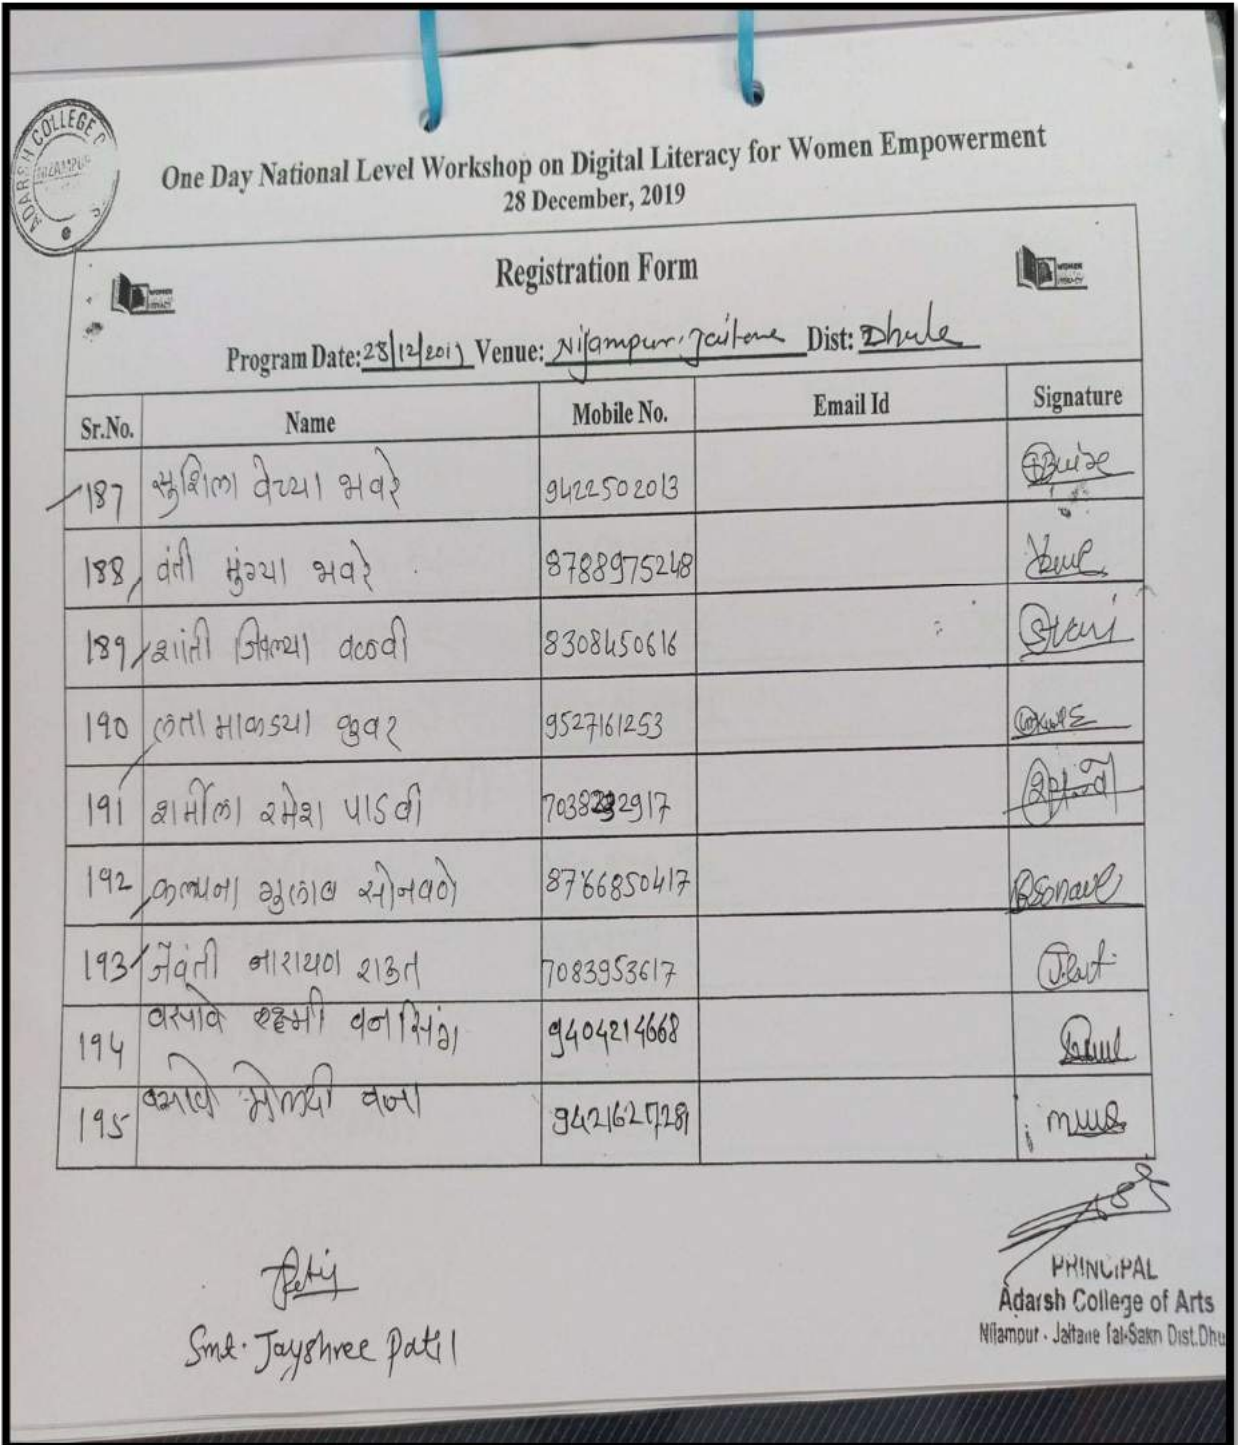 ADARSH COLLEGE
NIZAMPUR
One Day National Level Workshop on Digital Literacy for Women Empowerment
28 December, 2019
Registration Form
WOMEN
LITERACY
WOMEN
LITERACY
Program Date: 28/12/2019 Venue: Nijampur, Jaitane Dist: Dhule
Sr.No. Name Mobile No. Email Id Signature
187 सुशिला वेच्या भवरे 9422502013
188 वंती मुंग्या भवरे 8788975248
189 शांती जिल्या वळवी 8308450616
190 लता माकडया कुवर 9527161253
191 शर्मीला रमेश पाडवी 7038232917
192 कल्पना गुलाब सोनवणे 8766850417
193 जेवंती नारायण राऊत 7083953617
194 वसावे लक्ष्मी वनसिंग 9404214668
195 वसावे मोलमी वन्या 9421627281
PRINCIPAL
Adarsh College of Arts
Smt. Jayshree Patil
Nijampur - Jaitane Tal-Sakri Dist.Dhu